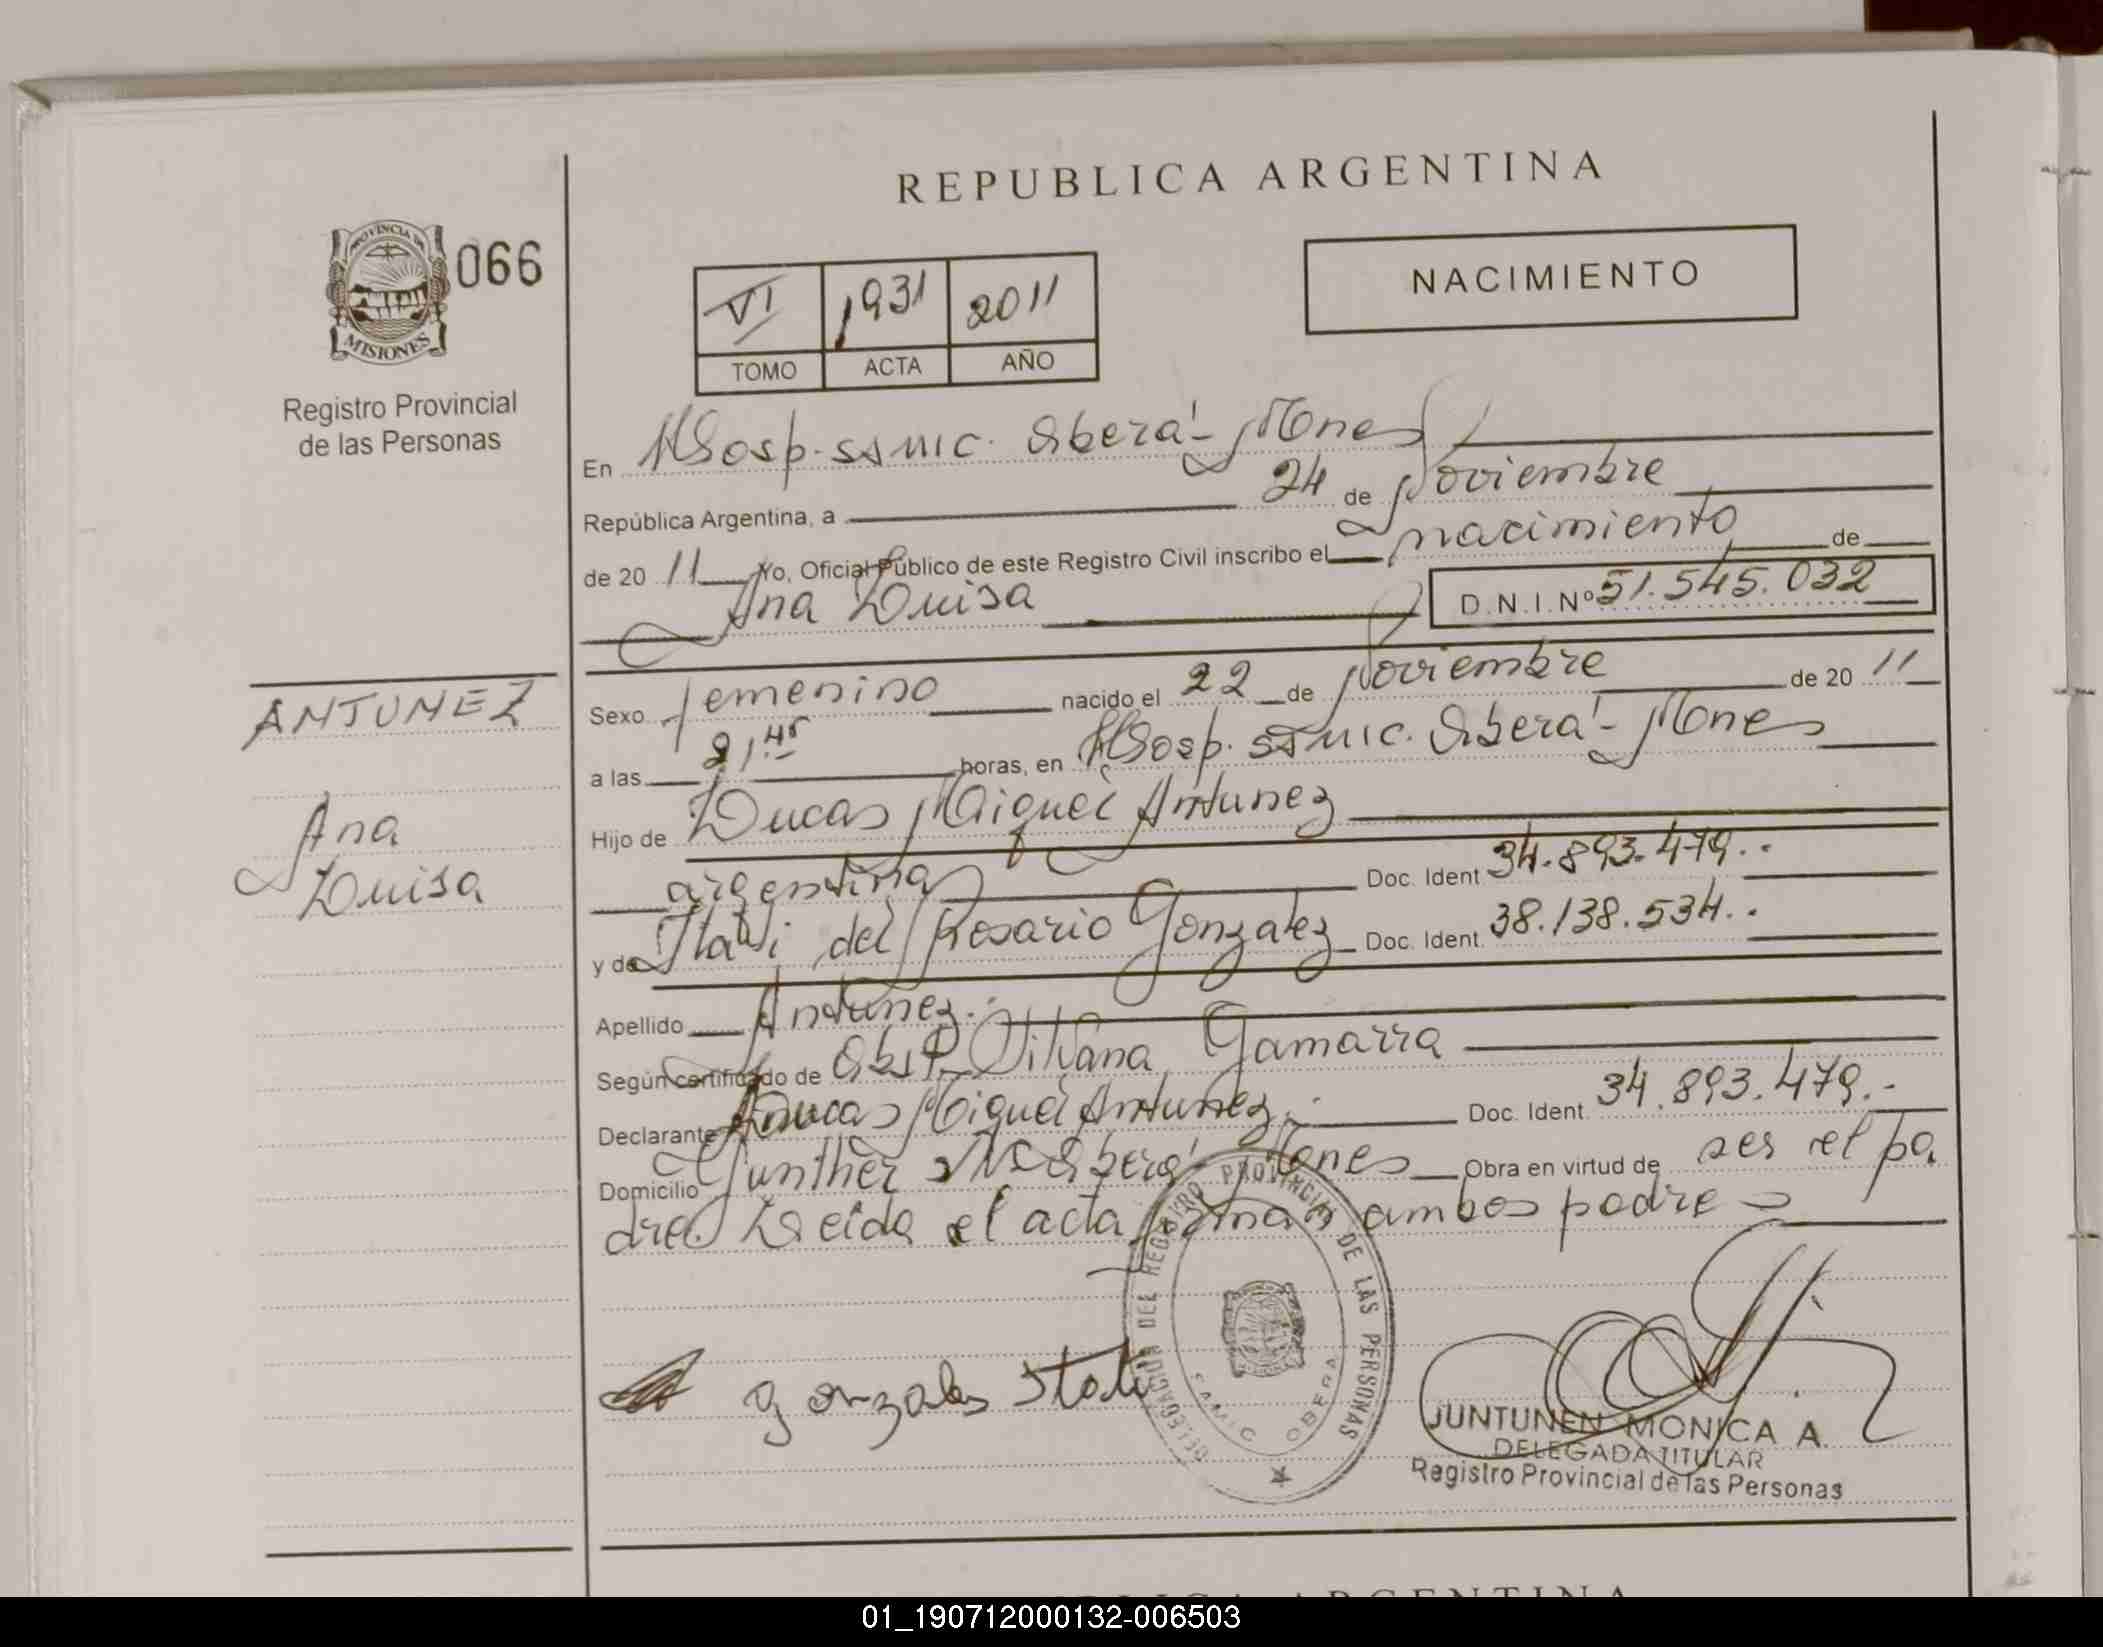 REPUBLICA ARGENTINA
PROVINCIA DE
MISIONES
066
Registro Provincial
de las Personas
VI 1931 2011
TOMO ACTA AÑO
NACIMIENTO
En Hosp. SAMIC. Oberá - Mnes
República Argentina, a 24 de Noviembre
de 20 11 Yo, Oficial Público de este Registro Civil inscribo el nacimiento de
Ana Luisa D.N.I.Nº 51.545.032
ANTUNEZ
Ana
Luisa
Sexo femenino nacido el 22 de Noviembre de 20 11
a las 21,45 horas, en Hosp. SAMIC. Oberá - Mnes
Hijo de Lucas Miguel Antunez
argentina Doc. Ident 34.893.479.-
y de Itatí del Rosario Gonzalez Doc. Ident. 38.138.534.-
Apellido Antunez.
Según certificado de Obst. Silvana Gamarra
Declarante Lucas Miguel Antunez Doc. Ident. 34.893.479.-
Domicilio Gunther Oberá Mnes Obra en virtud de ser el pa
dre. Leída el acta firman ambos padres
DELEGACION DEL REGISTRO PROVINCIAL DE LAS PERSONAS
SAMIC OBERA
gonzales Itati
JUNTUNEN MONICA A.
DELEGADA TITULAR
Registro Provincial de las Personas
01_190712000132-006503